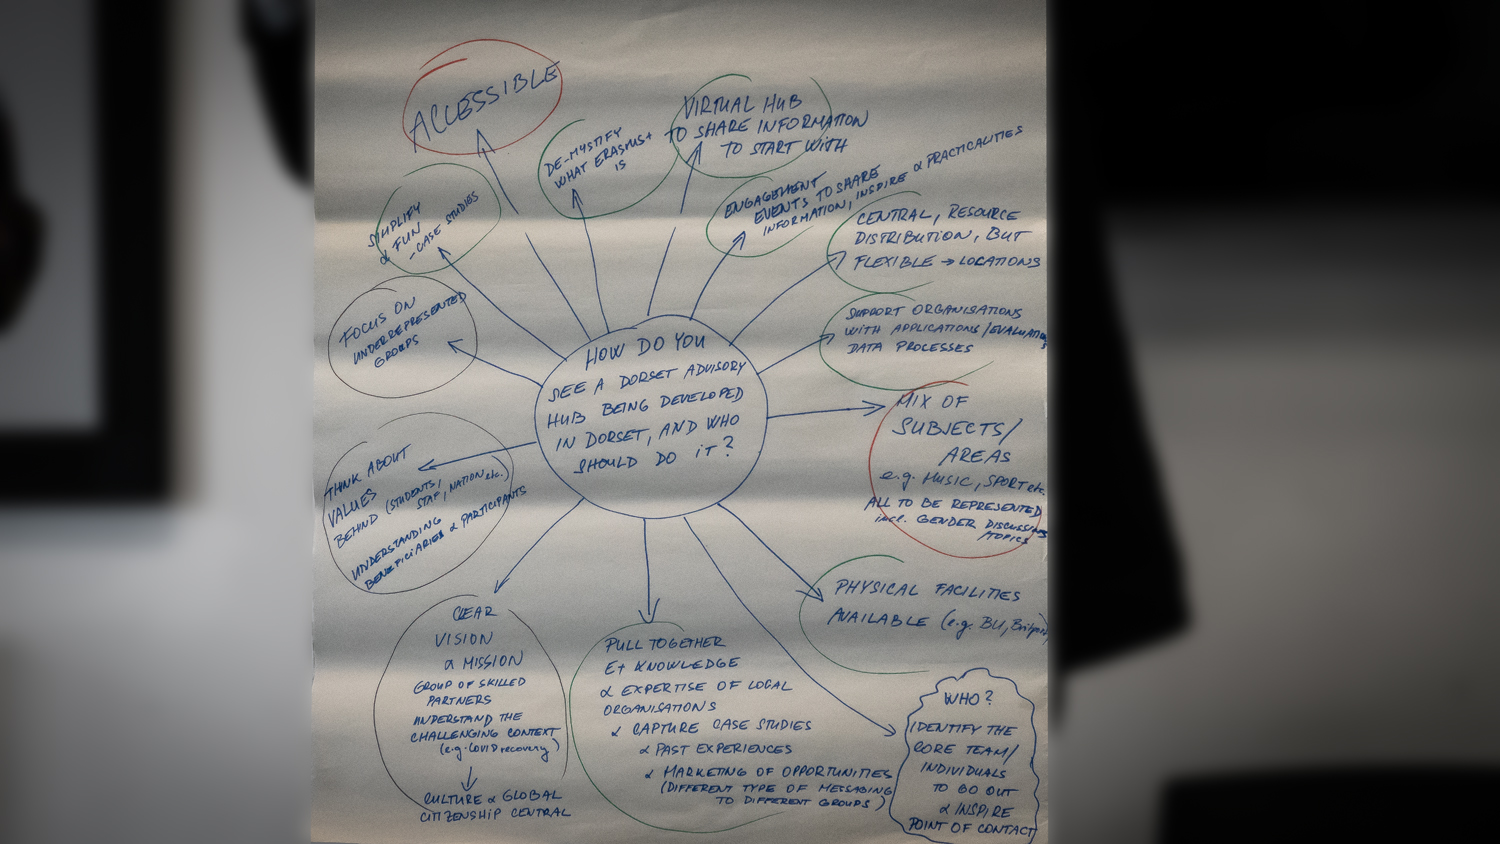 ACCESSIBLE
DE-MYSTIFY
WHAT ERASMUS+
IS
VIRTUAL HUB
TO SHARE INFORMATION
TO START WITH
ENGAGEMENT
EVENTS TO SHARE
INFORMATION, INSPIRE & PRACTICALITIES
SIMPLIFY
& FUN
- CASE STUDIES
CENTRAL, RESOURCE
DISTRIBUTION, BUT
FLEXIBLE → LOCATIONS
FOCUS ON
UNDERREPRESENTED
GROUPS
SUPPORT ORGANISATIONS
WITH APPLICATIONS/EVALUATION
DATA PROCESSES
HOW DO YOU
SEE A DORSET ADVISORY
HUB BEING DEVELOPED
IN DORSET, AND WHO
SHOULD DO IT?
MIX OF
SUBJECTS/
AREAS
e.g. MUSIC, SPORT etc.
ALL TO BE REPRESENTED
incl. GENDER DISCUSSIONS
TOPICS
THINK ABOUT
VALUES
BEHIND (STUDENTS,
STAF, NATION etc.)
UNDERSTANDING
BENEFICIARIES & PARTICIPANTS
PHYSICAL FACILITIES
AVAILABLE (e.g. BU,
CLEAR
VISION
& MISSION
GROUP OF SKILLED
PARTNERS
UNDERSTAND THE
CHALLENGING CONTEXT
(e.g. COVID recovery)
↓
CULTURE & GLOBAL
CITIZENSHIP CENTRAL
PULL TOGETHER
E+ KNOWLEDGE
& EXPERTISE OF LOCAL
ORGANISATIONS
& CAPTURE CASE STUDIES
& PAST EXPERIENCES
& MARKETING OF OPPORTUNITIES
(DIFFERENT TYPE OF MESSAGING
TO DIFFERENT GROUPS)
WHO?
IDENTIFY THE
CORE TEAM/
INDIVIDUALS
TO GO OUT
& INSPIRE
POINT OF CONTACT